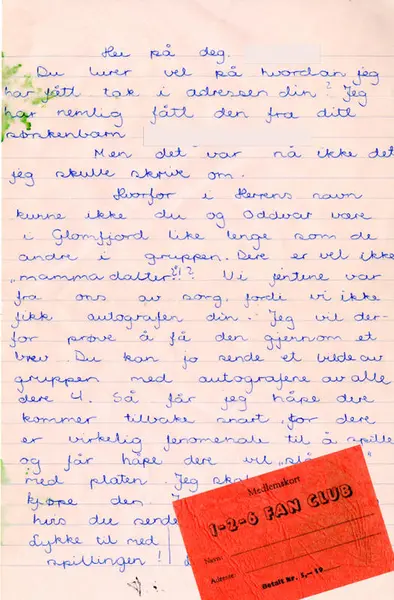 Hei på deg.
Du lurer vel på hvordan jeg
har fått tak i adressen din? Jeg
har nemlig fått den fra ditt
sønkenbarn
Men det var nå ikke det
jeg skulle skrive om.
Hvorfor i Herrens navn
kunne ikke du og Oddvar være
i Glomfjord like lenge som de
andre i gruppen. Dere er vel ikke
"mammadalter"!? Vi jentene var
fra oss av sorg, fordi vi ikke
fikk autografen din. Jeg vil der-
for prøve å få den gjennom et
brev. Du kan jo sende et bilde av
gruppen med autografene av alle
dere 4. Så får jeg håpe dere
kommer tilbake snart, for dere
er virkelig fenomenale til å spille
og får håpe dere vil "slå
med platen. Jeg
kjøpe den.
hvis du sende
Lykke til med
spillingen!
Medlemskort
1-2-6 FAN CLUB
Navn:
Adresse:
Betalt Kr. 1,- 10